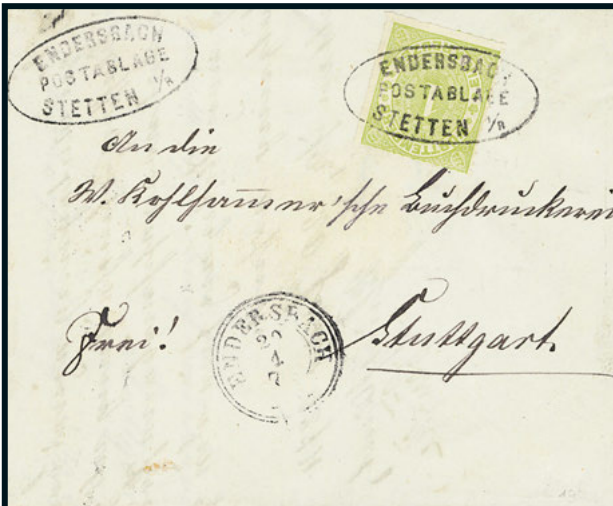 ENDERSBACH
POSTABLAGE
STETTEN i/R
ENDERSBACH
POSTABLAGE
STETTEN i/R
An die
W. Kohlhammer'sche Buchdruckerei
Frei!
ENDERSBACH
4
Stuttgart.